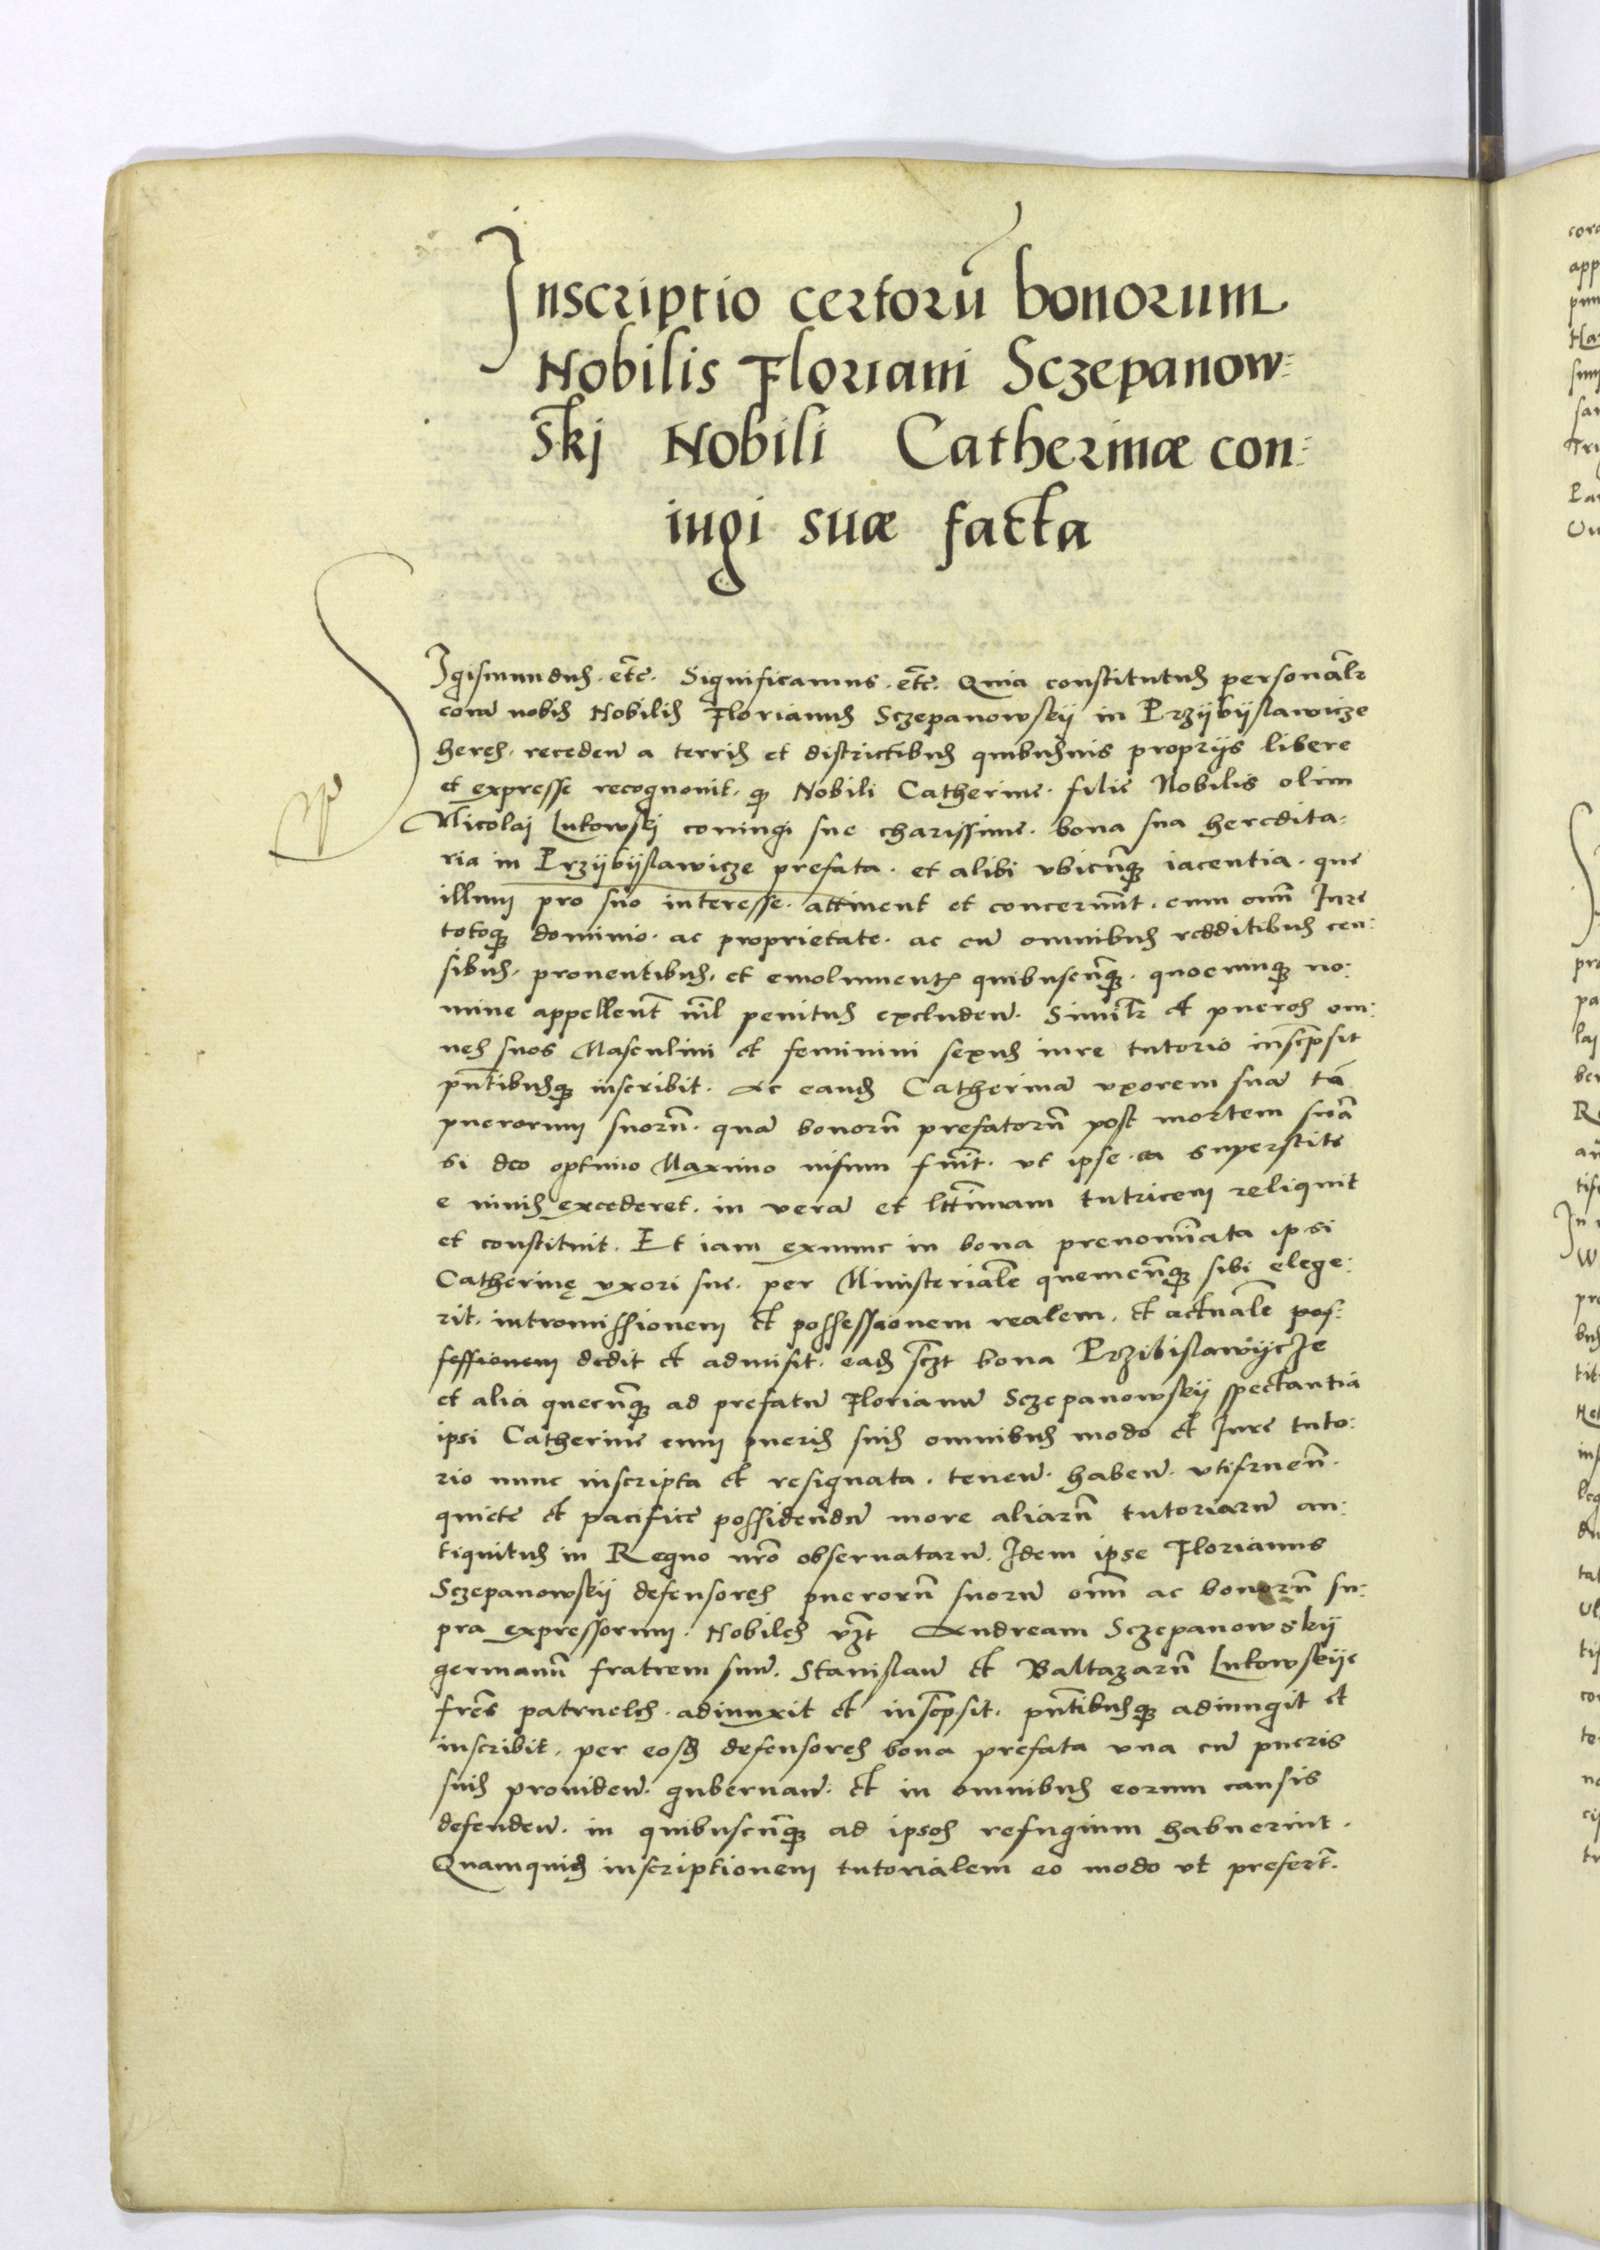 Inscriptio certorū bonorum
Nobilis Floriani Sczepanow:
skj Nobili Catherinæ con:
iugi suæ facta
Sigismundus. etc̄. Significamus. etc̄. Quia constitutus personalr̄
corā nobis Nobilis Florianus Sczepanowskÿ in Przÿbÿslawicze
heres. recedeñ a terris et districtibus quibusuis proprijs libere
et expresse recognouit. q̄ Nobili Catherine. filie Nobilis olim
Nicolaj Lukowskj coniugi sue charissime. bona sua heredita:
ria in Przÿbÿslawicze prefata. et alibi vbicūq iacentia. que
illum pro suo interesse. attinent et concernūt. cum omī Iure
totoq dominio. ac proprietate. ac cū omnibus redditibus cen:
sibus. prouentibus. et emolumentꝭ quibuscūq. quocumq no:
mine appellent̄ nīl penitus excludeñ. Similr̄ et pueros om:
nes suos Masculini et feminini sexus iure tutorio inscrip̄sit
pn̄tibusq inscribit. Ac eandē Catherinā vxorem suā tā
puerorum suorū. quā bonorū prefatorū post mortem suā
si deo optimo Maximo uisum fuīt. vt ipse ea superstite
e uiuis excederet. in verā et lttīmam tutricem reliquit
et constituit. Et iam exnunc in bona prenomīata ipsi
Catherinę vxori sue. per Ministerialē quemcūq sibi elege:
rit. intromissionem et possessionem realem. et actualē pos:
sessionem dedit et admisit. eadē sczt bona Przibislawÿcze
et alia quecūq ad prefatū Florianū Sczepanowskÿ spectantia
ipsi Catherine cum pueris suis omnibus modo et Iure tuto:
rio nunc inscripta et resignata. teneñ. habeñ. vtifrueñ.
quiete et pacifice possidendū more aliarū tutoriarū an:
tiquitus in Regno nr̄o obseruatarū. Idem ipse Florianus
Sczepanowskÿ defensores puerorū suorū omī ac bonorū su:
pra expressorum. Nobiles vz̄t Andream Sczepanowskÿ
germanū fratrem suū. Stanislaū et Baltazarū Lukowskÿe
fr̄es patrueles. adiunxit et inscrip̄sit. pn̄tibusq adiungit et
inscribit. per eosdē defensores bona prefata vna cū pueris
suis prouideñ. gubernañ. et in omnibus eorum causis
defendeñ. in quibuscūq ad ipsos refugium habuerint.
Quamquidē inscriptionem tutorialem eo modo vt prefert̄.